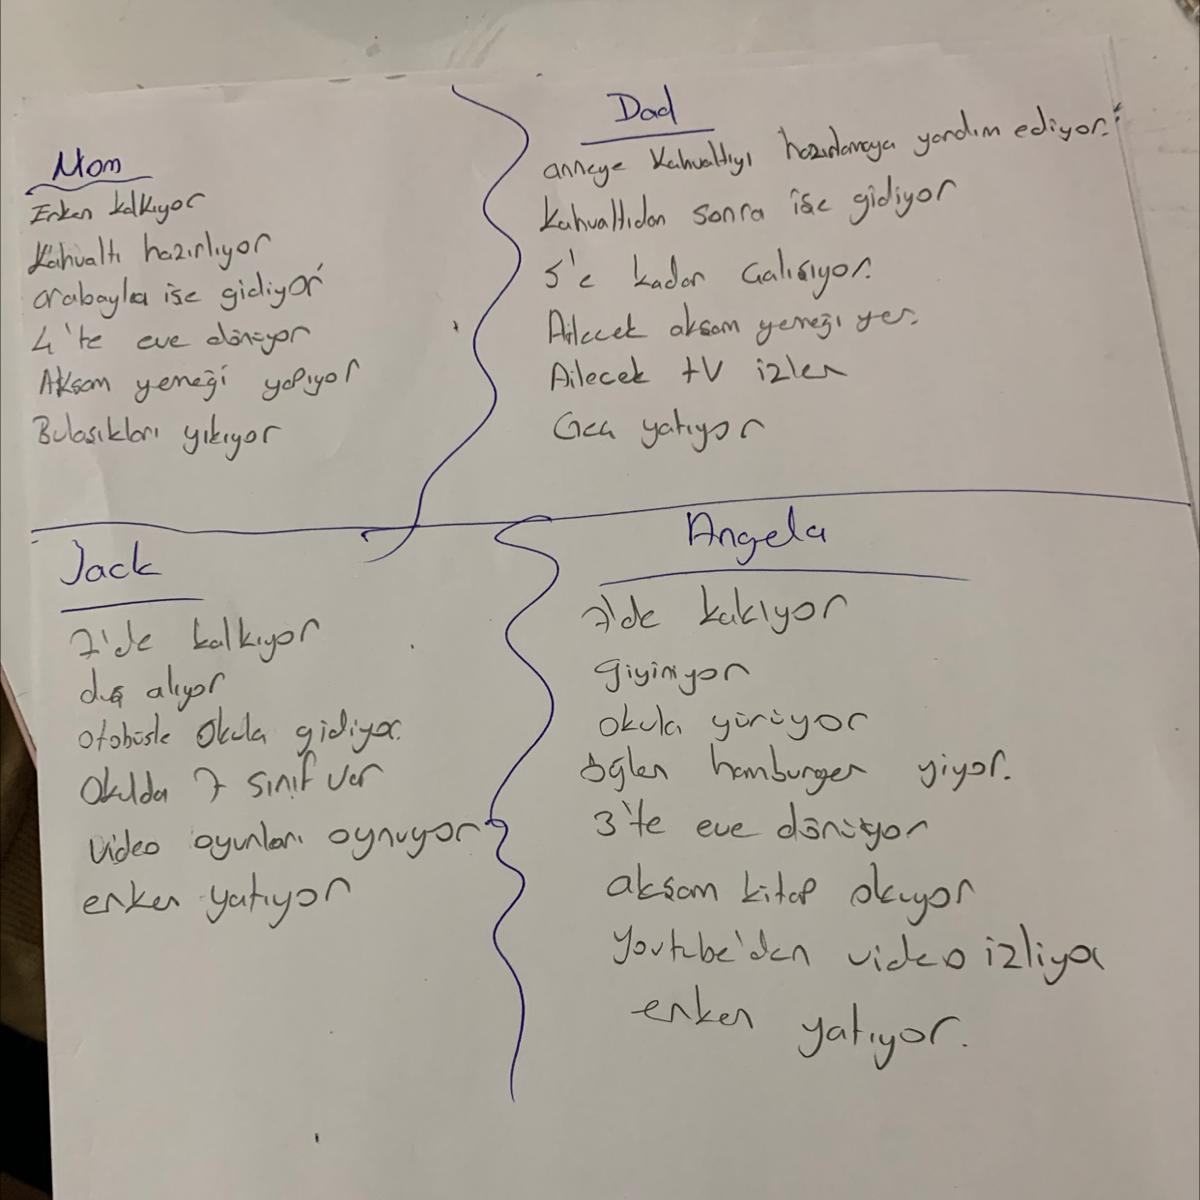 Mom
Erken kalkıyor
Kahvaltı hazırlıyor
arabayla işe gidiyor
4'te eve dönüyor
Akşam yemeği yapıyor
Bulaşıkları yıkıyor
Dad
anneye kahvaltıyı hazırlamaya yardım ediyor.
kahvaltıdan sonra işe gidiyor
5'e kadar çalışıyor.
Ailecek akşam yemeği yer.
Ailecek tV izler
Geç yatıyor
Jack
7'de kalkıyor
duş alıyor
otobüsle okula gidiyor.
Okulda 7 sınıf var
video oyunları oynuyor
erken yatıyor
Angela
7'de kakıyor
giyiniyor
okula yürüyor
öğlen hamburger yiyor.
3'te eve dönüyor
akşam kitap okuyor
Youtube'den video izliyor
erken yatıyor.